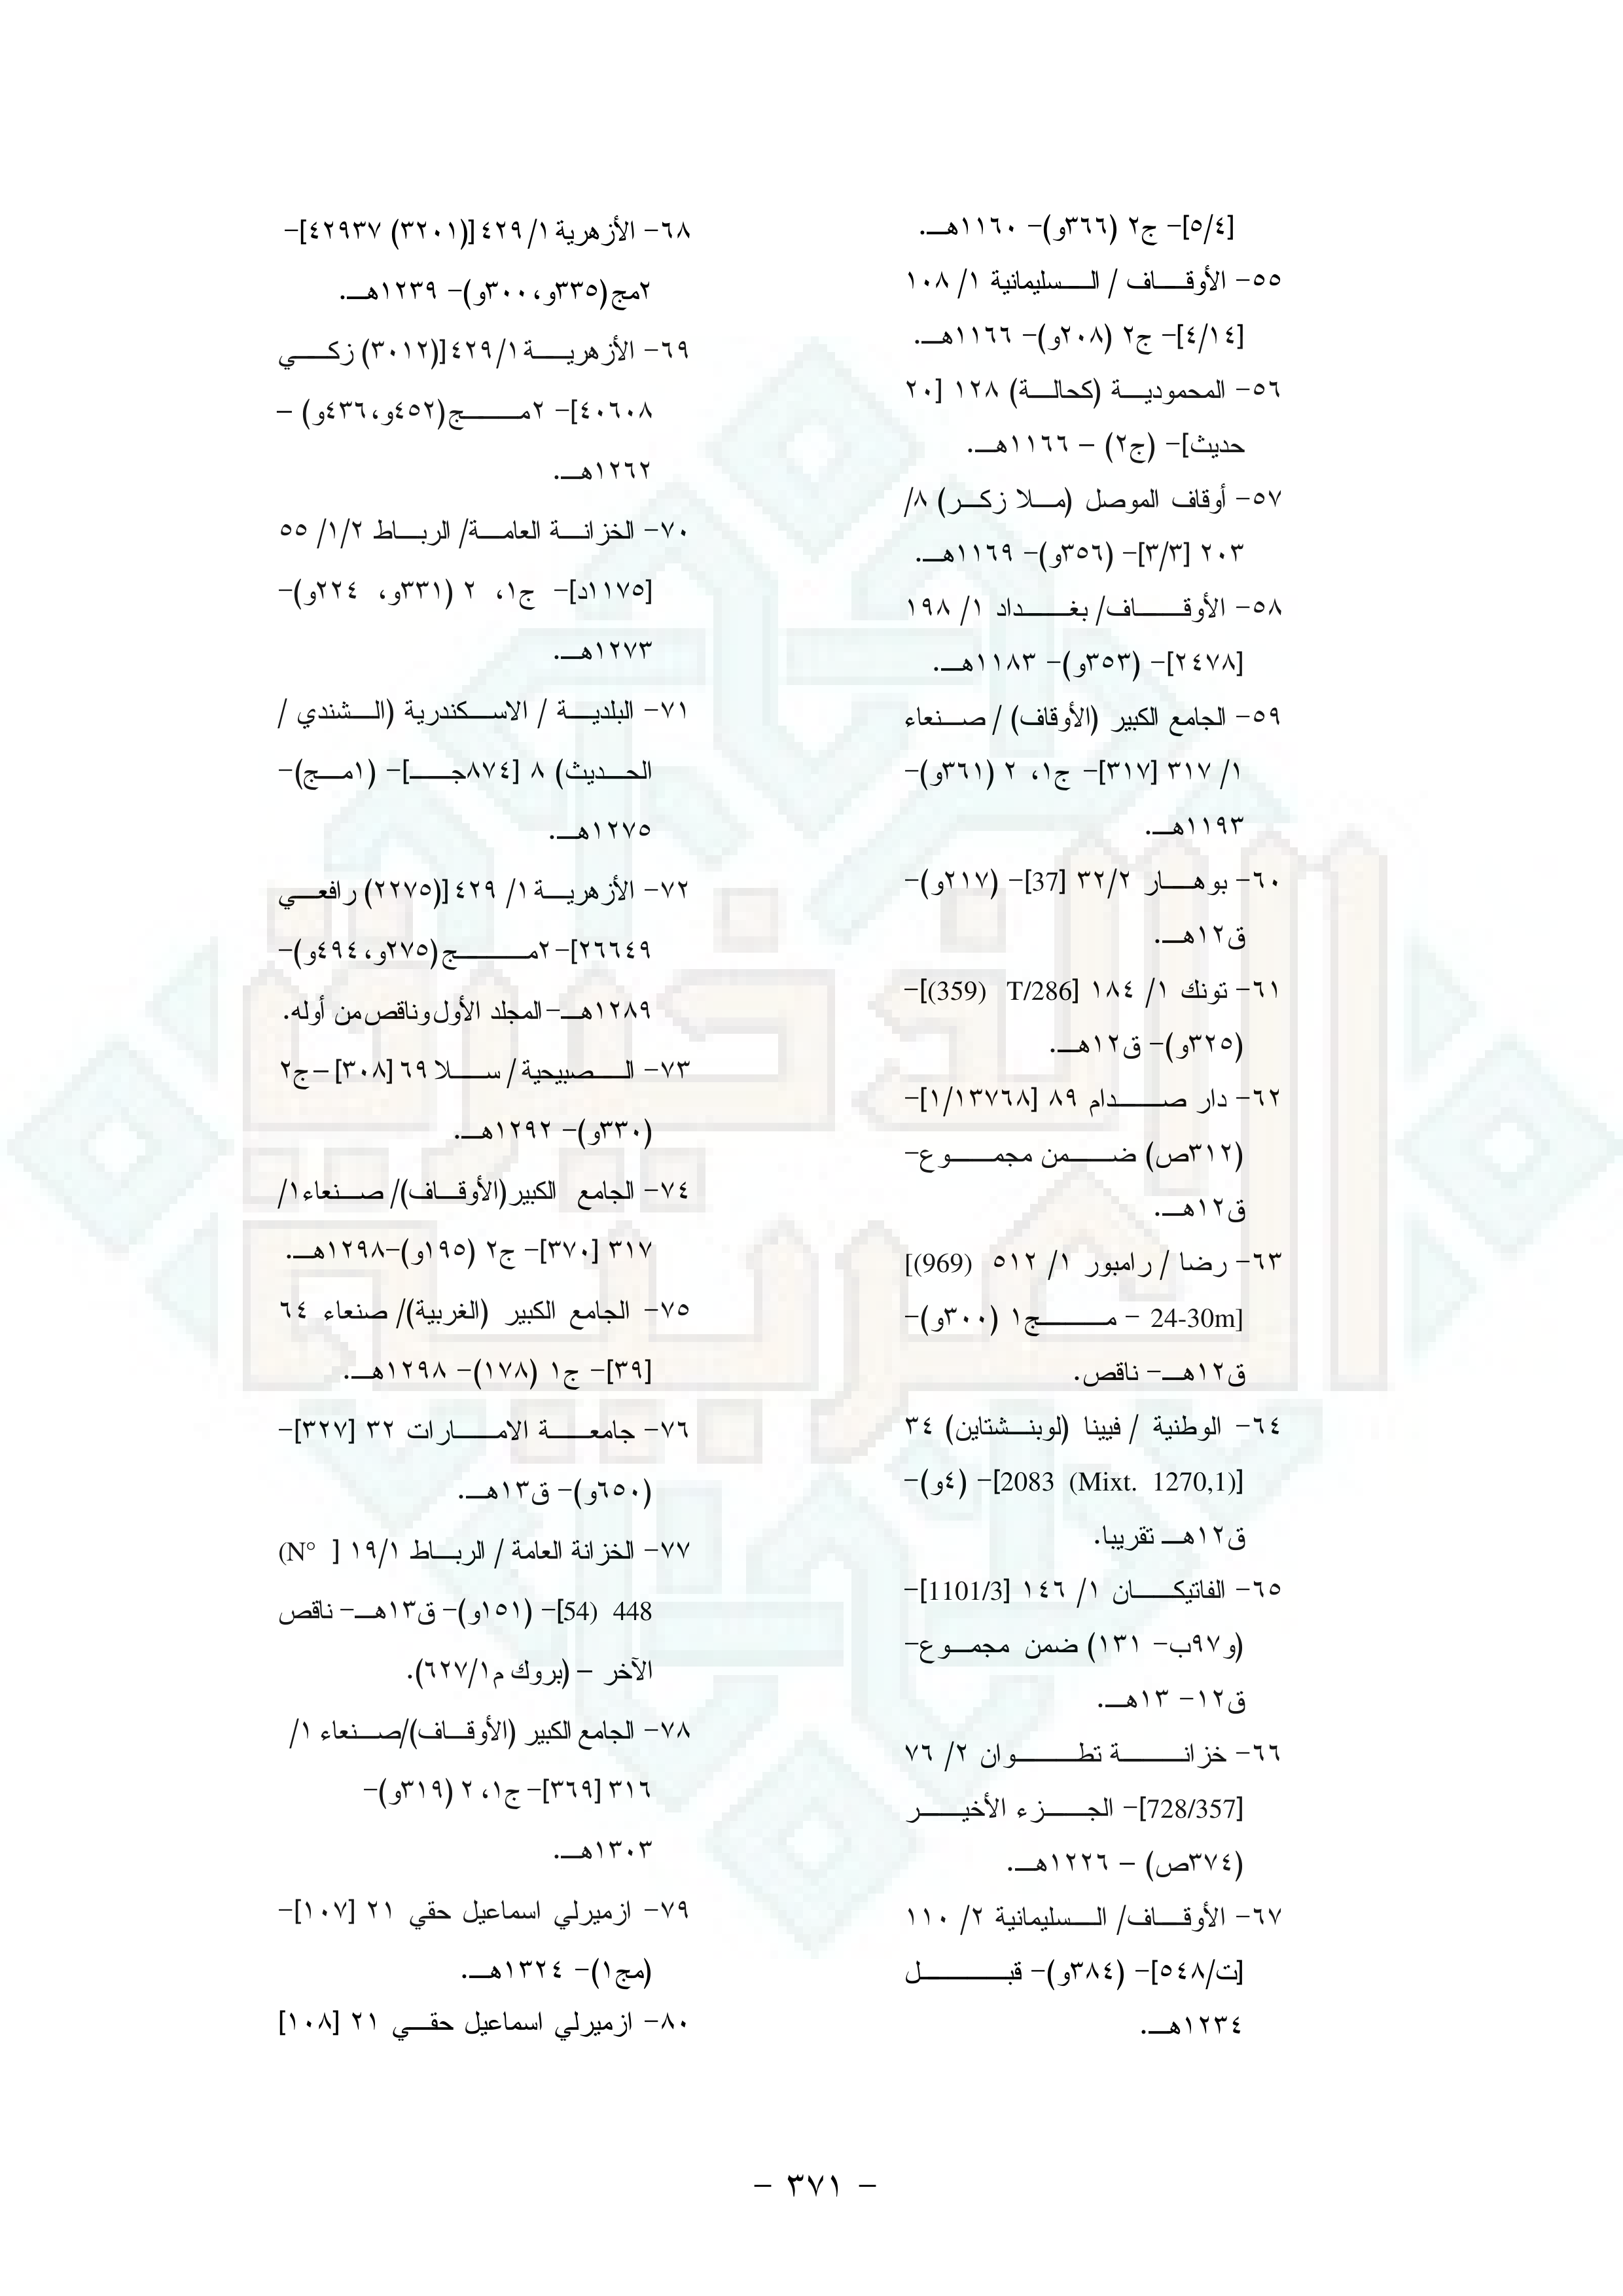 [٥/٤]- ج٢ (٣٦٦و)- ١١٦٠هـ.
٥٥- الأوقاف / السليمانية ١/ ١٠٨
[٤/١٤]- ج٢ (٢٠٨و)- ١١٦٦هـ.
٥٦- المحمودية (كحالة) ١٢٨ [٢٠
حديث]- (ج٢) – ١١٦٦هـ.
٥٧- أوقاف الموصل (ملا زكر) ٨/
٢٠٣ [٣/٣]- (٣٥٦و)- ١١٦٩هـ.
٥٨- الأوقاف/ بغداد ١/ ١٩٨
[٢٤٧٨]- (٣٥٣و)- ١١٨٣هـ.
٥٩- الجامع الكبير (الأوقاف) / صنعاء
١/ ٣١٧ [٣١٧]- ج١، ٢ (٣٦١و)-
١١٩٣هـ.
٦٠- بوهار ٣٢/٢ [37]- (٢١٧و)-
ق١٢هـ.
٦١- تونك ١/ ١٨٤ [T/286 (359)]-
(٣٢٥و)- ق١٢هـ.
٦٢- دار صدام ٨٩ [١/١٣٧٦٨]-
(٣١٢ص) ضمن مجموع-
ق١٢هـ.
٦٣- رضا / رامبور ١/ ٥١٢ [(969)
24-30m] - مج١ (٣٠٠و)-
ق١٢هـ- ناقص.
٦٤- الوطنية / فيينا (لوبنشتاين) ٣٤
[2083 (Mixt. 1270,1)]- (٤و)-
ق١٢هـ تقريبا.
٦٥- الفاتيكان ١/ ١٤٦ [1101/3]-
(و٩٧ب- ١٣١) ضمن مجموع-
ق١٢- ١٣هـ.
٦٦- خزانة تطوان ٢/ ٧٦
[728/357]- الجزء الأخير
(٣٧٤ص) – ١٢٢٦هـ.
٦٧- الأوقاف/ السليمانية ٢/ ١١٠
[ت/٥٤٨]- (٣٨٤و)- قبل
١٢٣٤هـ.
٦٨- الأزهرية ١/ ٤٢٩ [(٣٢٠١) ٤٢٩٣٧]-
٢مج(٣٣٥و، ٣٠٠و)- ١٢٣٩هـ.
٦٩- الأزهرية ١/ ٤٢٩ [(٣٠١٢) زكي
٤٠٦٠٨]- ٢مج(٤٥٢و، ٤٣٦و) –
١٢٦٢هـ.
٧٠- الخزانة العامة/ الرباط ١/٢/ ٥٥
[١١٧٥د]- ج١، ٢ (٣٣١و، ٢٢٤و)-
١٢٧٣هـ.
٧١- البلدية / الاسكندرية (الشندي /
الحديث) ٨ [٨٧٤جـ]- (١مج)-
١٢٧٥هـ.
٧٢- الأزهرية ١/ ٤٢٩ [(٢٢٧٥) رافعي
٢٦٦٤٩]- ٢مج(٢٧٥و، ٤٩٤و)-
١٢٨٩هـ- المجلد الأول وناقص من أوله.
٧٣- الصبيحية / سلا ٦٩ [٣٠٨] – ج٢
(٣٣٠و)- ١٢٩٢هـ.
٧٤- الجامع الكبير(الأوقاف)/ صنعاء١/
٣١٧ [٣٧٠]- ج٢ (١٩٥و)-١٢٩٨هـ.
٧٥- الجامع الكبير (الغربية)/ صنعاء ٦٤
[٣٩]- ج١ (١٧٨)- ١٢٩٨هـ.
٧٦- جامعة الامارات ٣٢ [٣٢٧]-
(٦٥٠و)- ق١٣هـ.
٧٧- الخزانة العامة / الرباط ١٩/١ [ (N°
448 (54]- (١٥١و)- ق١٣هـ- ناقص
الآخر – (بروك م٦٢٧/١).
٧٨- الجامع الكبير (الأوقاف)/صنعاء ١/
٣١٦ [٣٦٩]- ج١، ٢ (٣١٩و)-
١٣٠٣هـ.
٧٩- ازميرلي اسماعيل حقي ٢١ [١٠٧]-
(مج١)- ١٣٢٤هـ.
٨٠- ازميرلي اسماعيل حقي ٢١ [١٠٨]
- ٣٧١ -